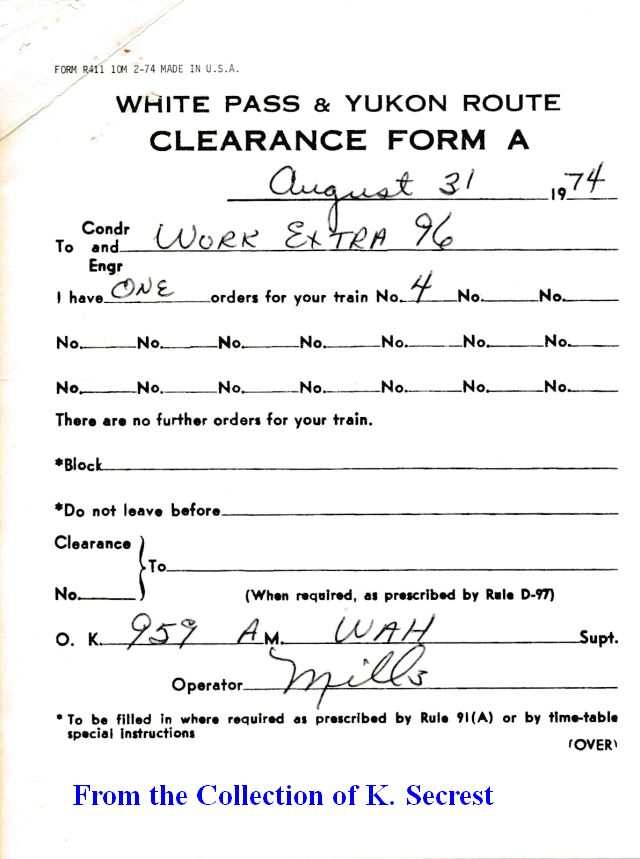 FORM R411 10M 2-74 MADE IN U.S.A.
WHITE PASS & YUKON ROUTE
CLEARANCE FORM A
August 31 1974
To Condr and Engr WORK EXTRA 96
I have ONE orders for your train No. 4 No. No.
No. No. No. No. No. No. No.
No. No. No. No. No. No. No.
There are no further orders for your train.
*Block
*Do not leave before
Clearance
No. } To
(When required, as prescribed by Rule D-97)
O. K. 959 A M. WAH Supt.
Operator Mills
* To be filled in where required as prescribed by Rule 91(A) or by time-table
special instructions
(OVER)
From the Collection of K. Secrest